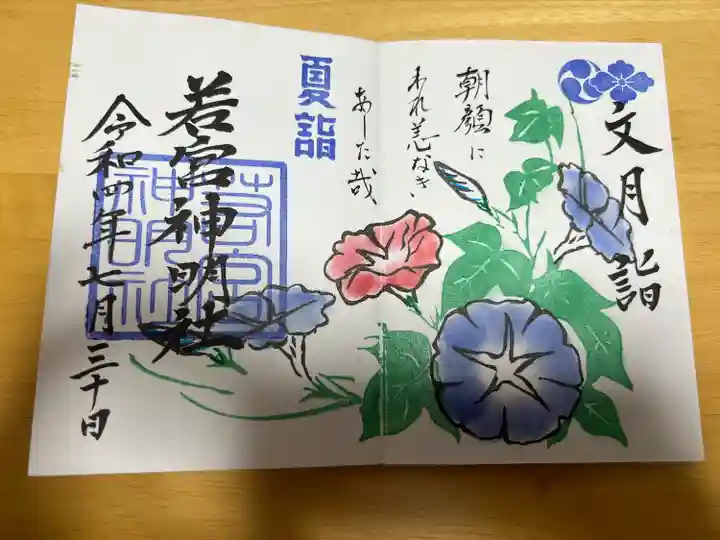 文月詣
朝顔に
われ恙なき
あした哉
夏詣
若宮神明社
若宮
神明社
令和四年七月三十日